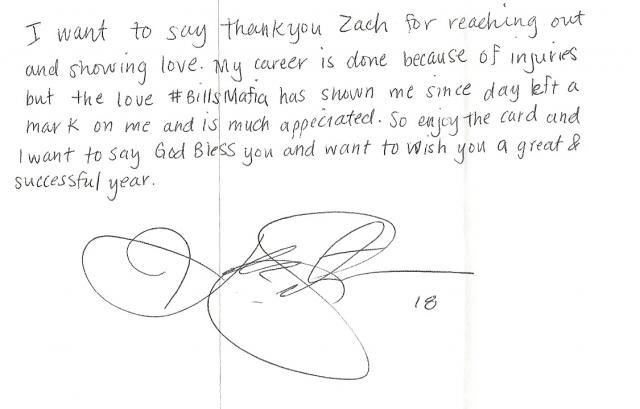 I want to say thankyou Zach for reaching out
and showing love. My career is done because of injuries
but the love #BillsMafia has shown me since day left a
mark on me and is much appeciated. So enjoy the card and
I want to say God Bless you and want to wish you a great &
successful year.
18